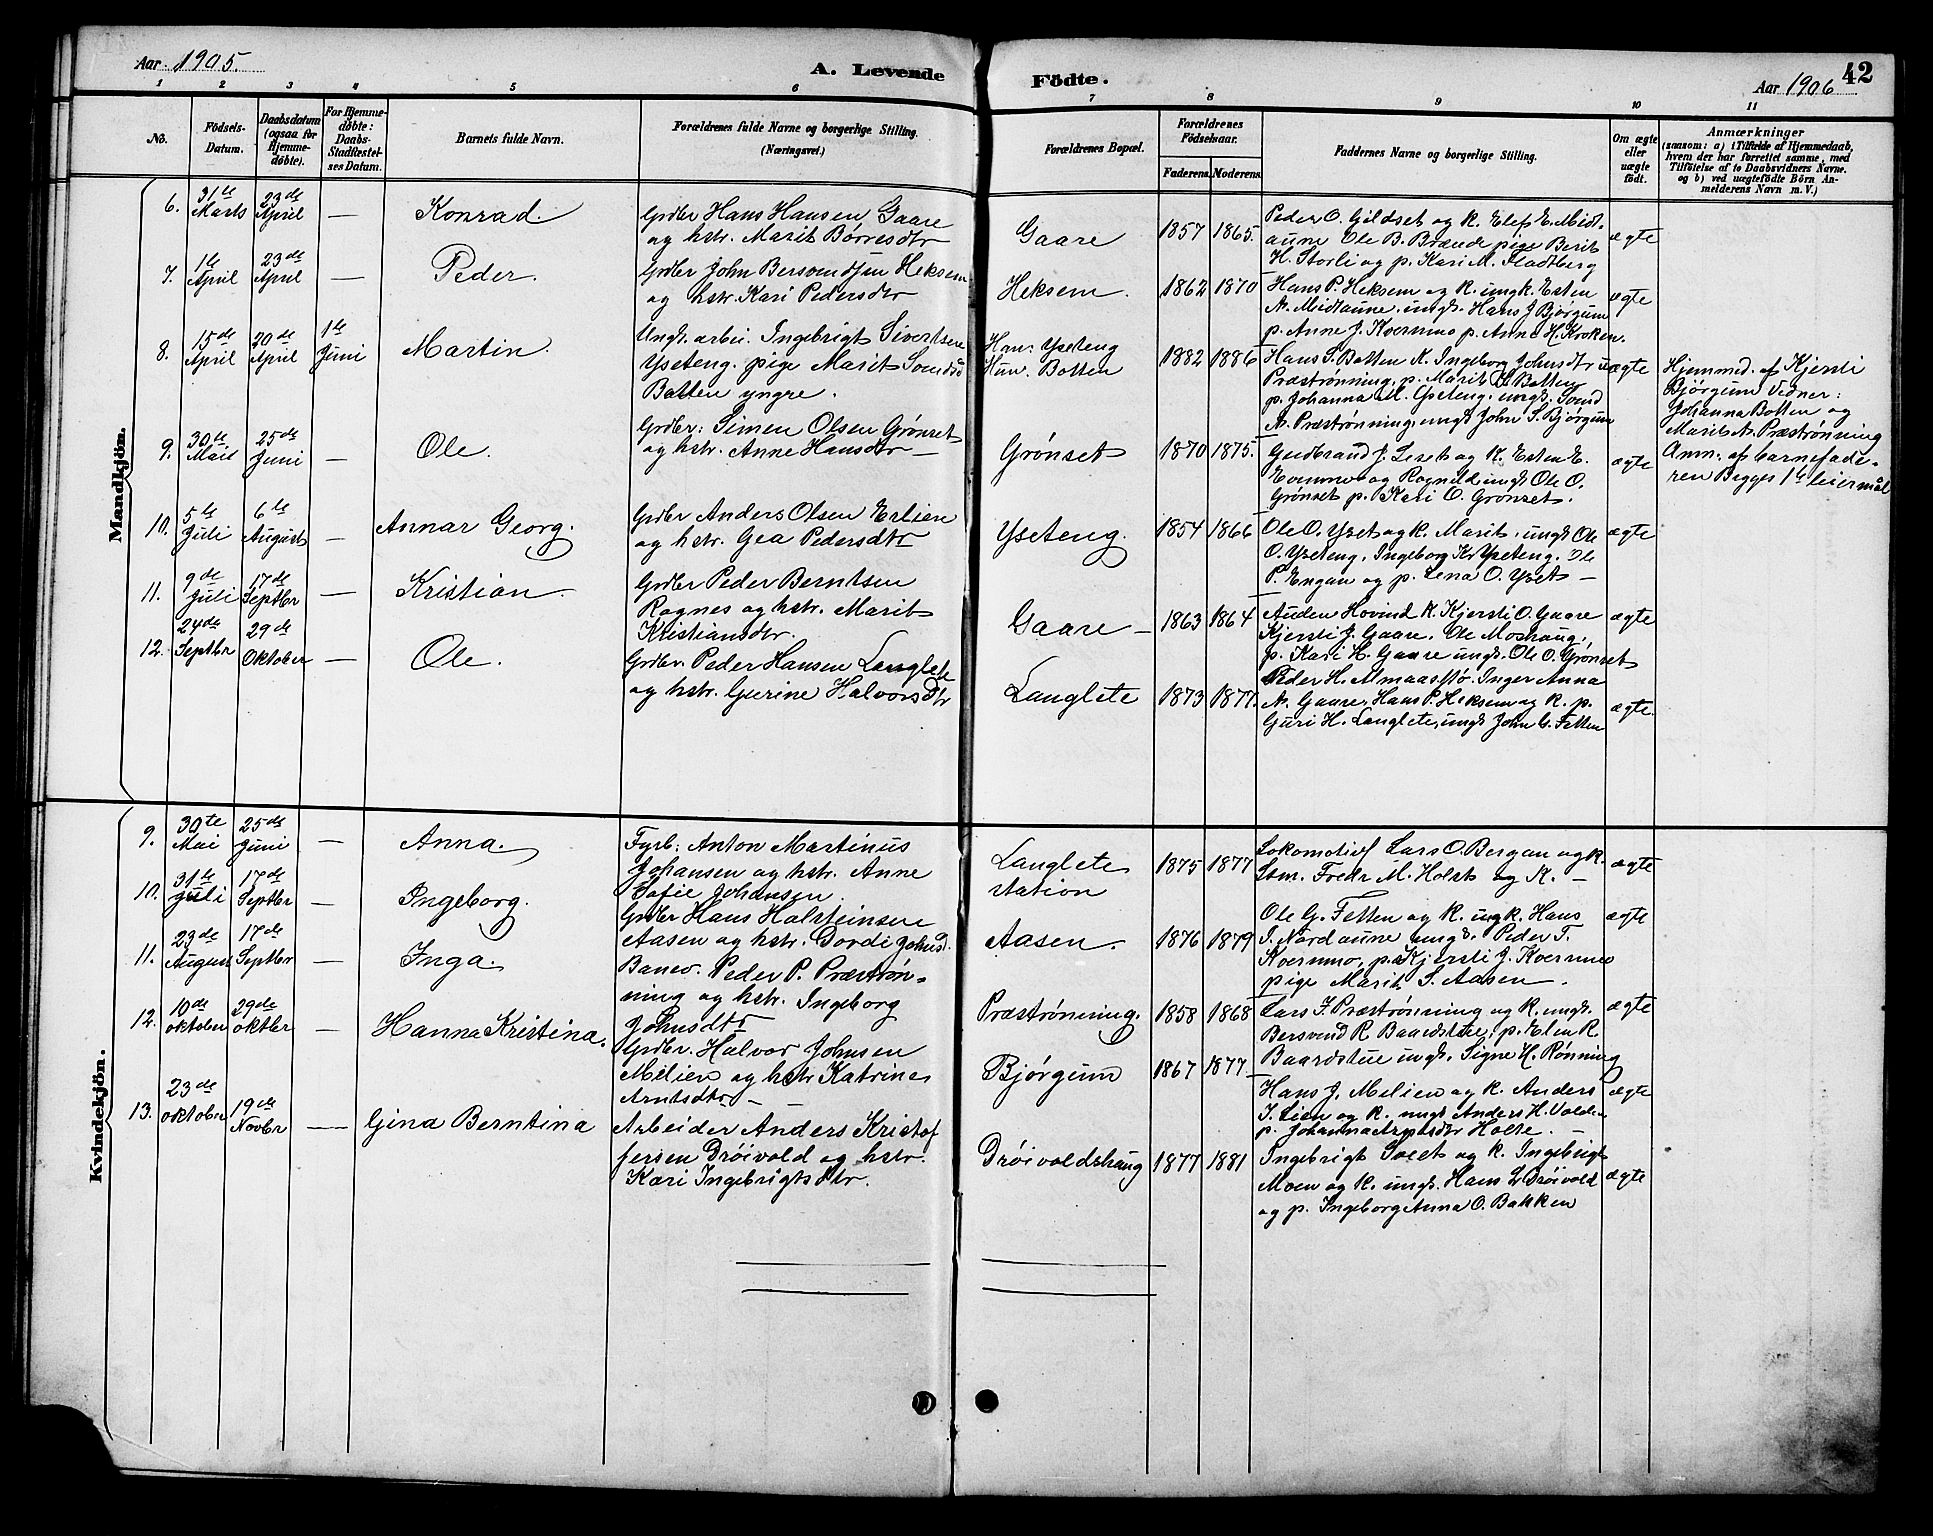 Aar 1905.
A. Levende
Födte.
Aar 1906
42
1 2 3 4 5 6 7 8 9 10 11
No.
Födsels-
Datum.
Daabsdatum
(ogsaa for
Hjemme-
döbte).
For Hjemme-
döbte:
Daabs-
Stadfæstel-
ses Datum.
Barnets fulde Navn.
Forældrenes fulde Navne og borgerlige Stilling.
(Næringsvei.)
Forældrenes Bopæl.
Forældrenes
Födselsaar.
Faderens. Moderens.
Faddernes Navne og borgerlige Stilling.
Om ægte
eller
uægte
födt.
Anmærkninger
(saasom: a) i Tilfælde af Hjemmedaab,
hvem der har forrettet samme, med
Tilföielse af to Daabsvidners Navne.
og b) ved uægtefödte Börn An-
melderens Navn m. V.)
Mandkjön.
6.
31te
Marts
23de
April
—
Konrad.
Grdbr Hans Hansen Gaare
og hstr. Marit Børresdtr
Gaare
1857 1865.
Peder O. Gildset og K. Elef E. Midt-
aune Ole B. Brænde pige Berit
H. Storli og p. Kari M. Fladtberg
ægte
7.
1te
April
23de
April
—
Peder.
Grdbr John Bersvendsen Heksem
og hstr. Kari Pedersdtr
Heksem.
1862 1870
Hans P. Heksem og K. ungk. Esten
A. Midtaune. ungk. Hans J Bjørgum
p. Anne J. Kvernmo p. Anne H. Kroken.
ægte
8.
15de
April
20de
April
1te
Juni
Martin.
Ungk. arbei. Ingebrigt Sivertsen
Ysteng. pige Marit
Botten yngre.
Han: Ysteng
Hun. Botten
1882 1886
Hans S. Botten K. Ingeborg Johnsdtr
Præstrønning. p. Marit Botten
p. Johanna M. Ysteng. ungk.
A. Præstrønning. ungk John S. Bjørgum
uægte
Hjemmed. af Kjersti
Bjørgum Vidner:
Johanna Botten og
Marit A. Præstrønning
Anm. af barnefade-
ren Begges 1te leiermål
9.
30te
Mai
25de
Juni
—
Ole.
Grdbr: Simen Olsen Grønset
og hstr. Anne Hansdtr —
Grønset
1870 1875.
Gudbrand J. og K. Esten E.
og Ragnild ungk Ole O.
Grønset p. Kari O. Grønset.
ægte
10.
5te
Juli
6te
August
—
Annar Georg.
Grdbr Anders Olsen Erlien
og hstr. Gea Pedersdtr
Ysteng.
1854 1866
Ole O. Yset og K. Marit. ungk Ole
O. Ysteng. Ingeborg K. Ysteng. Ole
P. Engan og p. Lena O. Yset —
ægte
11.
9de
Juli
17de
Septbr
—
Kristian.
Grdbr Peder Berntsen
Rognes og hstr. Marit
Kristiansdtr.
Gaare —
1863 1864
Auden Hovind K. Kjersti O. Gaare
Kjersti J. Gaare. Ole Moshaug.
p. Kari H. Gaare ungk. Ole O. Grønset
ægte
12.
24de
Septbr
29de
Oktober
—
Ole.
Grdbr. Peder Hansen Langlete
og hstr. Gurine Halvorsdtr
Langlete
1873 1877.
Peder H. Almaasstø. Inger Anna
A. Gaare. Hans P. Heksem og K. p.
Guri H. Langlete, ungk John G. Fetten
ægte.
Kvindekjön.
9.
30te
Mai
25de
Juni
—
Anna.
Fyrb: Anton Martinus
Johansen og hstr. Anne
Sofie Johansen.
Langlete
station
1875 1877
Lokomotivf Lars O. Bergan og K.
Stm. Fredr M. Holst og K. —
ægte
10.
31te
Juli
17de
Septbr
—
Ingeborg.
Grdbr Hans Halsteinsen
Aasen og hstr. Dordi Johnsd.
Aasen.
1876 1879
Ole G. Fetten og K. ungk. Hans
I. Nordaune ungk. Peder T.
Kvernmo, p. Kjersti J. Kvernmo
pige Marit S. Aasen.
ægte
11.
23de
August
17de
Septbr
—
Inga.
Banev. Peder P. Præstrøn-
ning og hstr. Ingeborg
Johnsdtr
Præstrønning.
1858 1868
Lars J. Præstrønning og K. ungk.
Bersvend R Baardstue, p. Elen R.
Baardstue ungk. Signe H. Rønning
ægte
12.
10de
oktober
29de
oktbr
—
Hanna Kristina.
Grdbr. Halvor Johnsen
Melien og hstr Katrine
Arntsdtr —
Bjørgum
1867 1877.
Hans J. Melien og K. Anders
J. Lien og K. ungk Anders H. Volden
p. Johanna Arntsdtr Holte. —
ægte
13.
23de
oktober
19de
Novbr
—
Gina Berntina
Arbeider Anders Kristof
fersen Drøivold og hstr.
Kari Ingebrigtsdtr.
Drøivoldshaug
1877 1881
Ingebrigt og K. Ingebrigt
Moen og K. ungk. Hans L Drøivold
og p. Ingeborg Anna O. Bakken
ægte